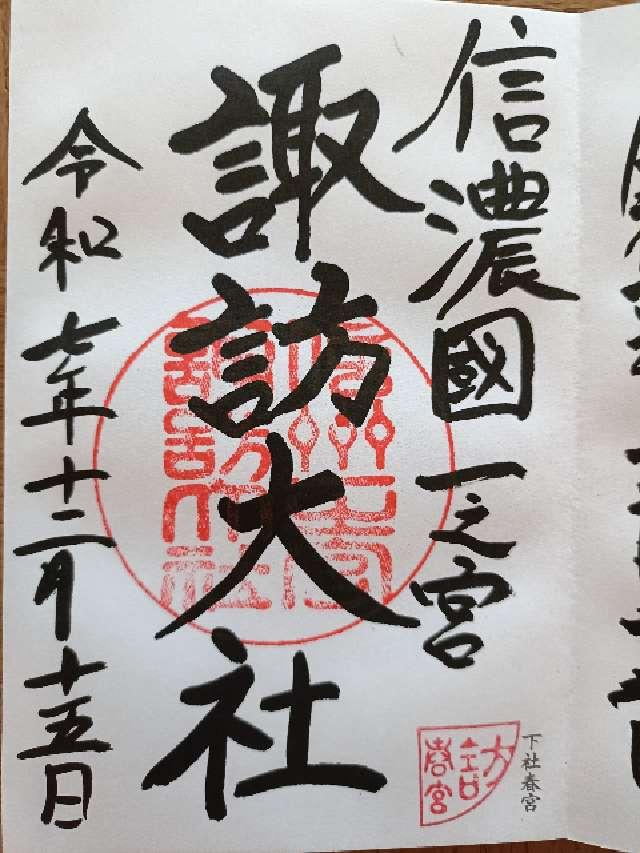 信濃國一之宮
諏訪大社
令和七年十二月十五日
下社春宮